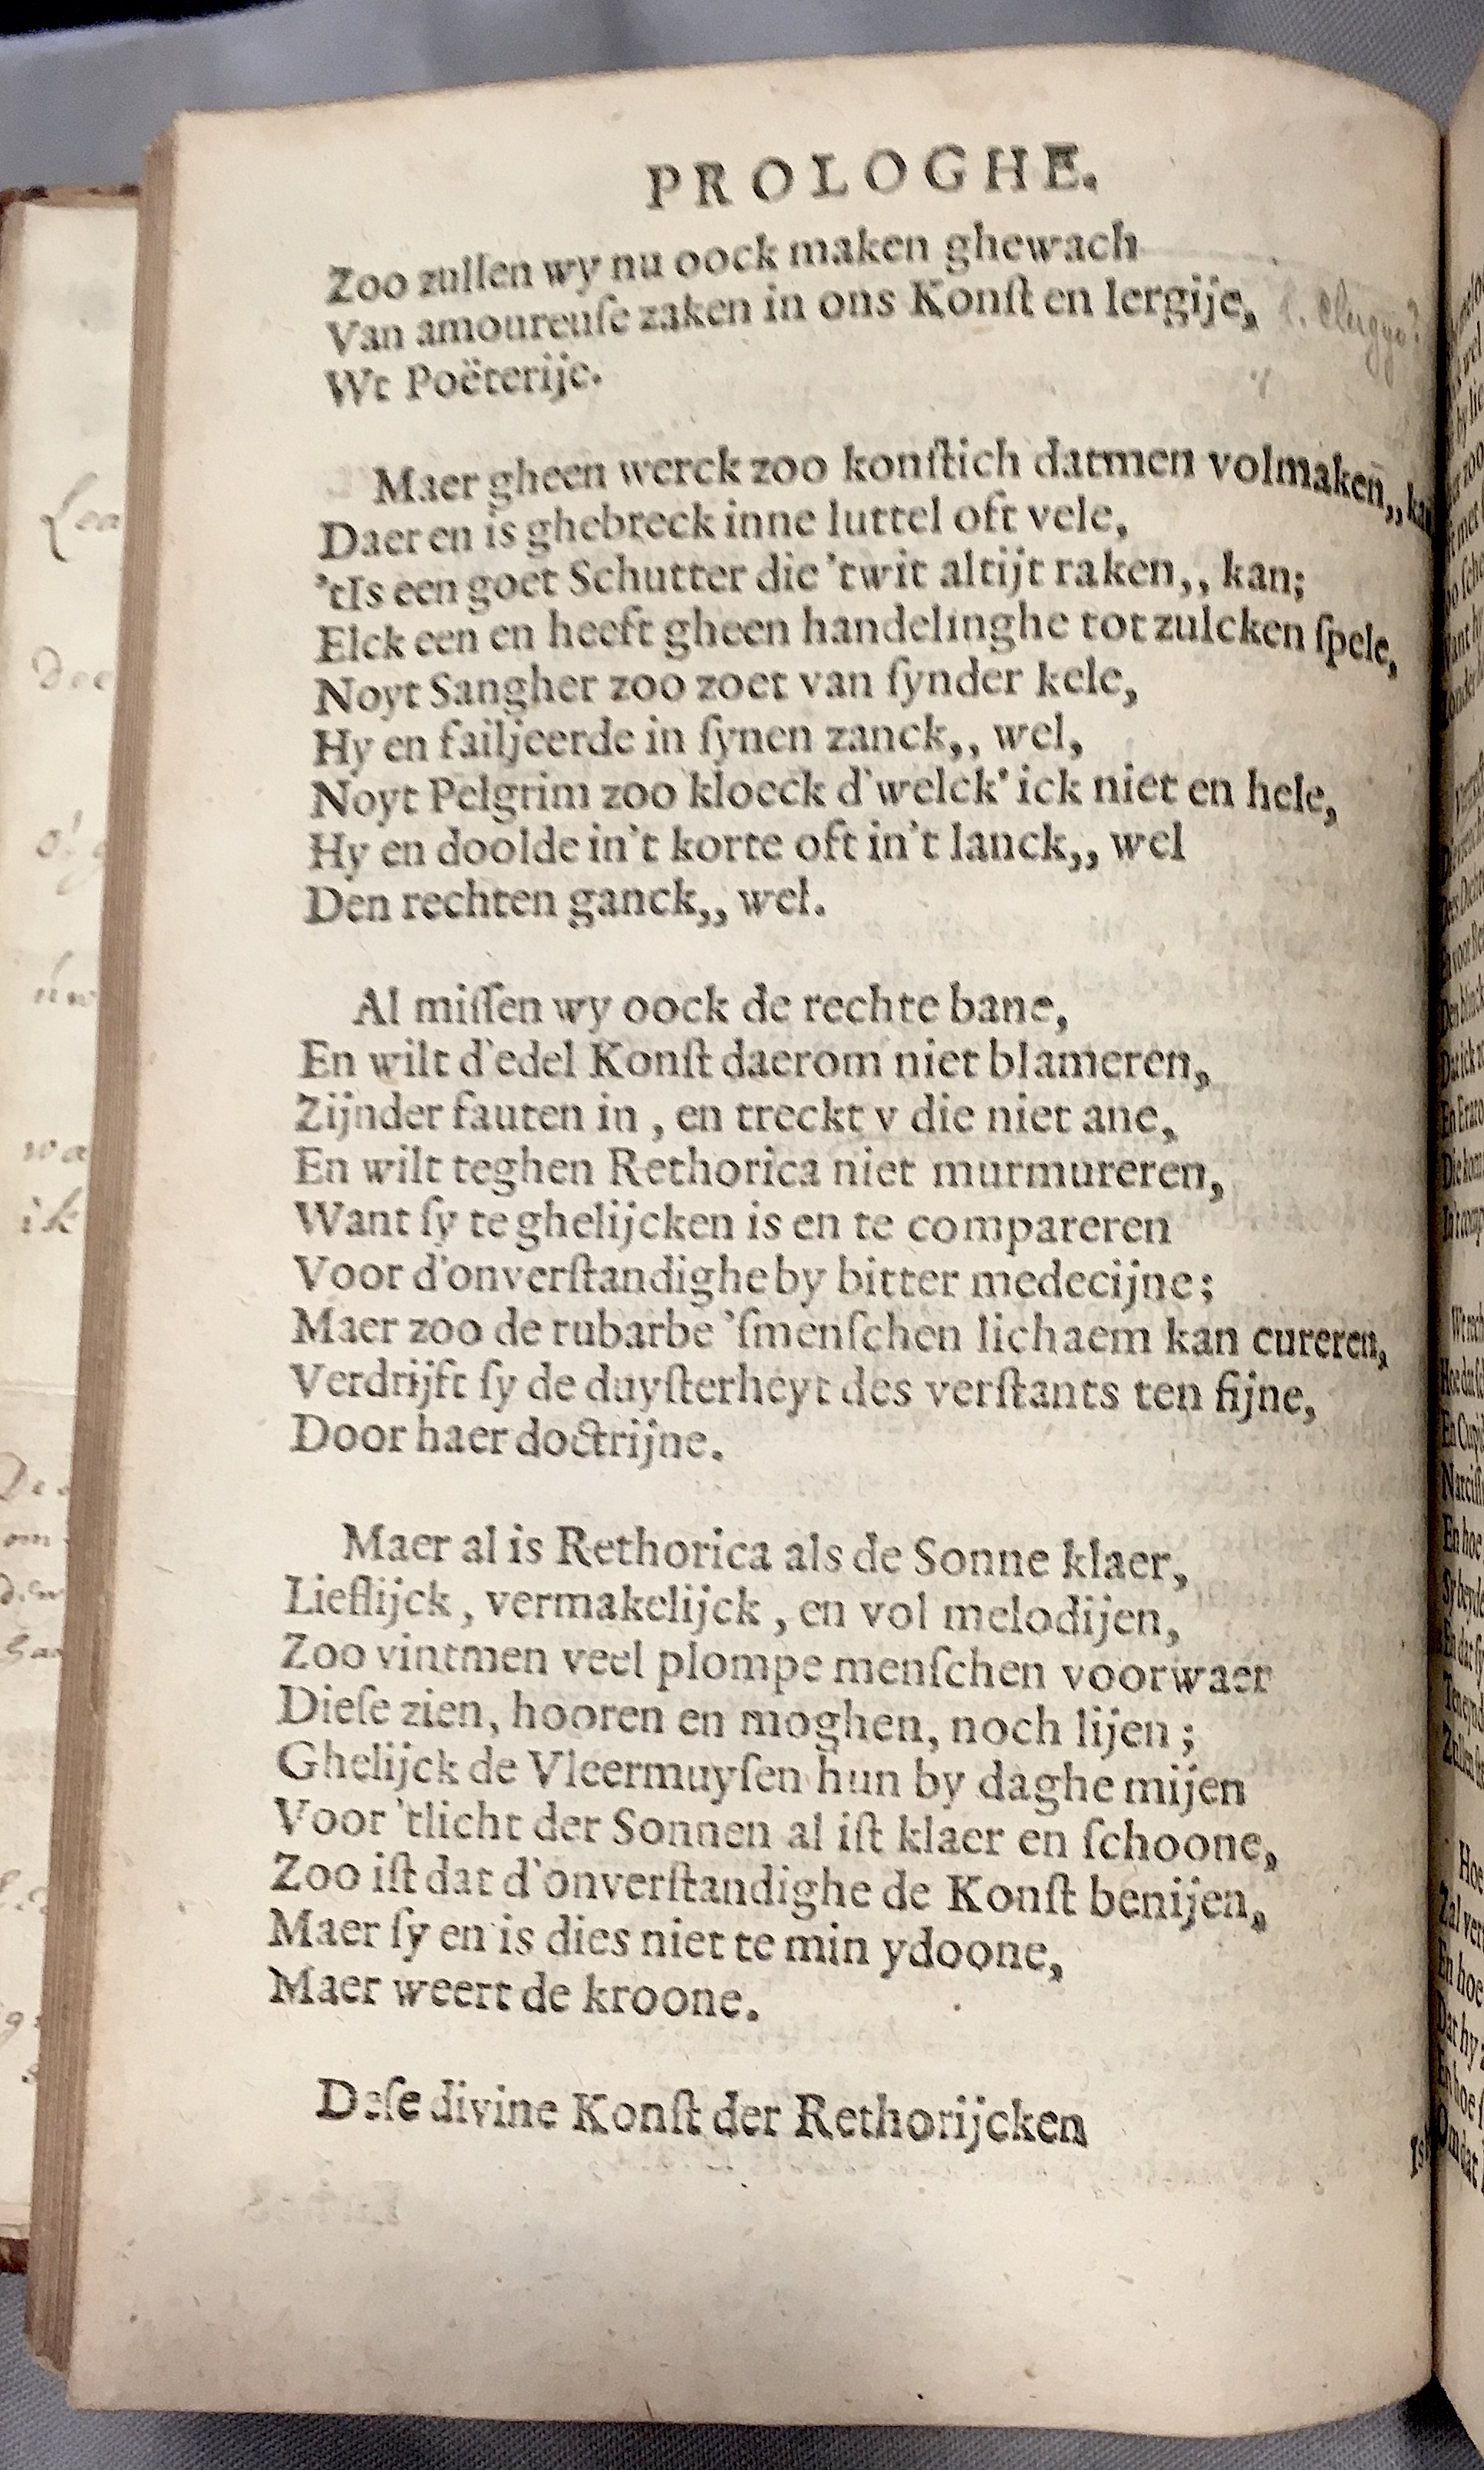 PROLOGHE.
Zoo zullen wy nu oock maken ghewach
Van amoureuſe zaken in ons Konſt en lergije,
Wt Poëterije.
Maer gheen werck zoo konſtich datmen volmaken,, kan
Daer en is ghebreck inne luttel oft vele,
'tIs een goet Schutter die 'twit altijt raken,, kan;
Elck een en heeft gheen handelinghe tot zulcken ſpele,
Noyt Sangher zoo zoet van ſynder kele,
Hy en failjeerde in ſynen zanck,, wel,
Noyt Pelgrim zoo kloeck d'welck' ick niet en hele,
Hy en doolde in't korte oft in't lanck,, wel
Den rechten ganck,, wel.
Al miſſen wy oock de rechte bane,
En wilt d'edel Konſt daerom niet blameren,
Zijnder fauten in, en treckt v die niet ane,
En wilt teghen Rethorica niet murmureren,
Want ſy te ghelijcken is en te compareren
Voor d'onverſtandighe by bitter medecijne;
Maer zoo de rubarbe 'ſmenſchen lichaem kan cureren,
Verdrijft ſy de duyſterheyt des verſtants ten fijne,
Door haer doctrijne.
Maer al is Rethorica als de Sonne klaer,
Lieflijck, vermakelijck, en vol melodijen,
Zoo vintmen veel plompe menſchen voorwaer
Dieſe zien, hooren en moghen, noch lijen;
Ghelijck de Vleermuyſen hun by daghe mijen
Voor 'tlicht der Sonnen al iſt klaer en ſchoone,
Zoo iſt dat d'onverſtandighe de Konſt benijen,
Maer ſy en is dies niet te min ydoone,
Maer weert de kroone.
Deſe divine Konſt der Rethorijcken